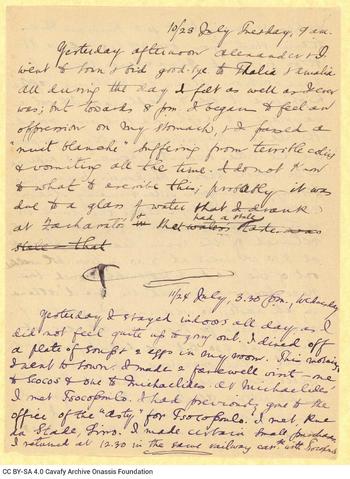 10/23 July Tuesday, 9 am.
Yesterday afternoon Alexander & I
went to town & bid good-bye to Thalia & Amalia
All during the day I felt as well as I ever
was; but towards 8 pm I began to feel an
oppression on my stomach, & I passed a
"nuit blanche" suffering from terrible colics
& vomiting all the time. I do not know
to what to ascribe this; probably it was
due to a glass of water that I drank
at Zacharato's the water had a stale taste was
stale that
11/24 July, 3.30 p.m., Wednesday
Yesterday I stayed indoors all day as I
did not feel quite up to going out. I dined off
a plate of soup & 2 eggs in my room. This morning
I went to town. I made 2 farewell visits one
to Scocos & one to Michaelides. At Michaelides'
I met Tsocopoulo. I had previously gone to the
office of the "Asty" for Tsocopoulo. I met, Rue
du Stade, Simo. I made certain small purchases
I returned at 12.30 in the same railway car
CC BY-SA 4.0 Cavafy Archive Onassis Foundation